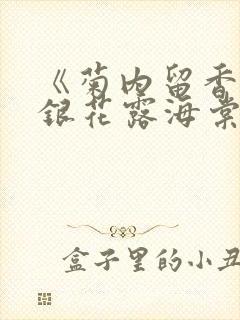 《菊内留香
銀花露海棠
盒子里的小丑